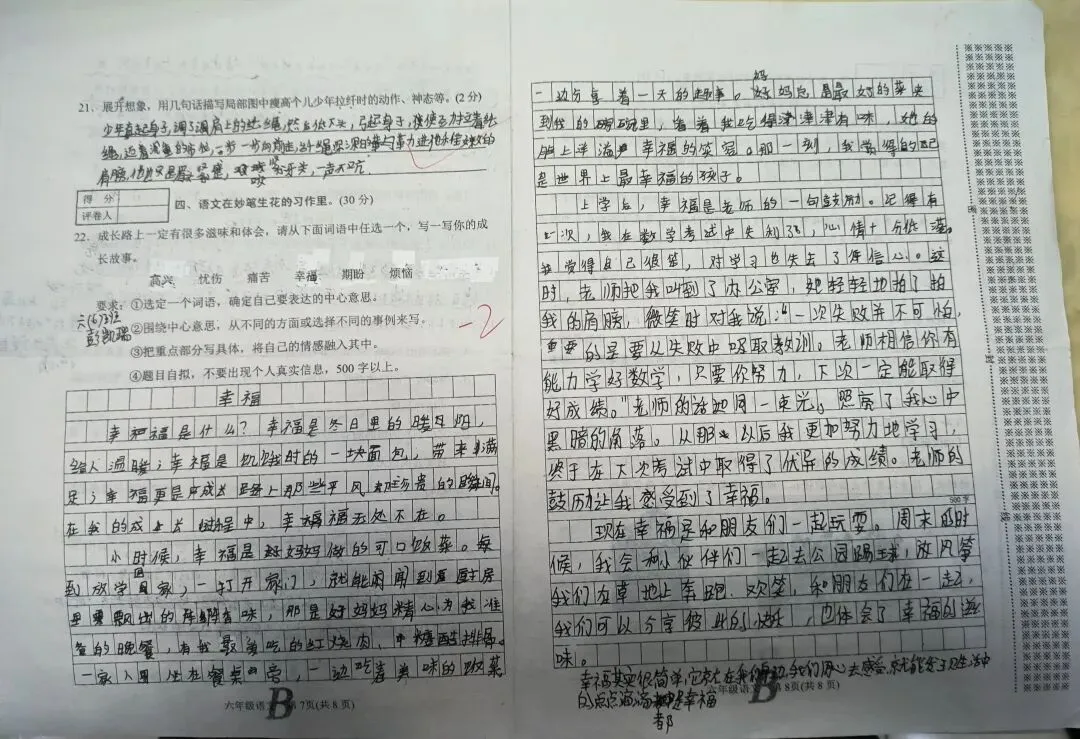 21、展开想象，用几句话描写局部图中瘦高个儿少年拉纤时的动作、神态等。(2分)
少年直起身子，调了调肩上的纤绳，然后低下头，弓起身子，
得 分
评卷人
四、语文在妙笔生花的习作里。(30分)
22、成长路上一定有很多滋味和体会，请从下面词语中任选一个，写一写你的成
长故事。
高兴 忧伤 痛苦 幸福 期盼 烦恼
要求：①选定一个词语，确定自己要表达的中心意思。
六(6)班
彭凯瑞
②围绕中心意思，从不同的方面或选择不同的事例来写。
-2
③把重点部分写具体，将自己的情感融入其中。
④题目自拟，不要出现个人真实信息，500字以上。
幸福
幸福是什么？幸福是冬日里的暖阳，
给人温暖；幸福是饥饿时的一块面包，带来满
足；幸福更是成长路上那些平凡却珍贵的瞬间。
在我的成长过程中，幸福无处不在。
小时候，幸福是妈妈做的可口饭菜。每
到放学回家，一打开家门，就能闻到厨房
里飘出的阵阵香味，那是妈妈精心为我准
备的晚餐，有我最爱吃的红烧肉、糖醋排骨。
一家人坐在餐桌旁，一边吃着美味的饭菜
B
六年级语文 第7页(共8页)
一边分享着一天的趣事。妈妈总是最好的菜夹
到我的碗里，看着我吃得津津有味，她的
脸上洋溢幸福的笑容。那一刻，我觉得自己
是世界上最幸福的孩子。
上学后，幸福是老师的一句鼓励。记得有
一次，我在数学考试中失利了，心情十分低落。
我觉得自己很笨，对学习也失去了信心。这
时，老师把我叫到了办公室，她轻轻地拍了拍
我的肩膀，微笑时对我说："一次失败并不可怕，
重要的是要从失败中吸取教训。老师相信你有
能力学好数学，只要你努力，下次一定能取得
好成绩。"老师的话如同一束光，照亮了我心中
黑暗的角落。从那以后我更加努力地学习，
终于在下次考试中取得了优异的成绩。老师的
鼓历让我感受到了幸福。
500字
现在幸福是和朋友们一起玩耍。周末的时
候，我会和小伙伴们一起去公园踢球，放风筝
我们在草地上奔跑、欢笑，和朋友们在一起，
我们可以分享彼此的快乐，也体会了幸福的滋
味。
幸福其实很简单，它就在我们身边，我们用心去感受，就能发现生活中
的点点滴滴都是幸福
B
六年级语文 第8页(共8页)